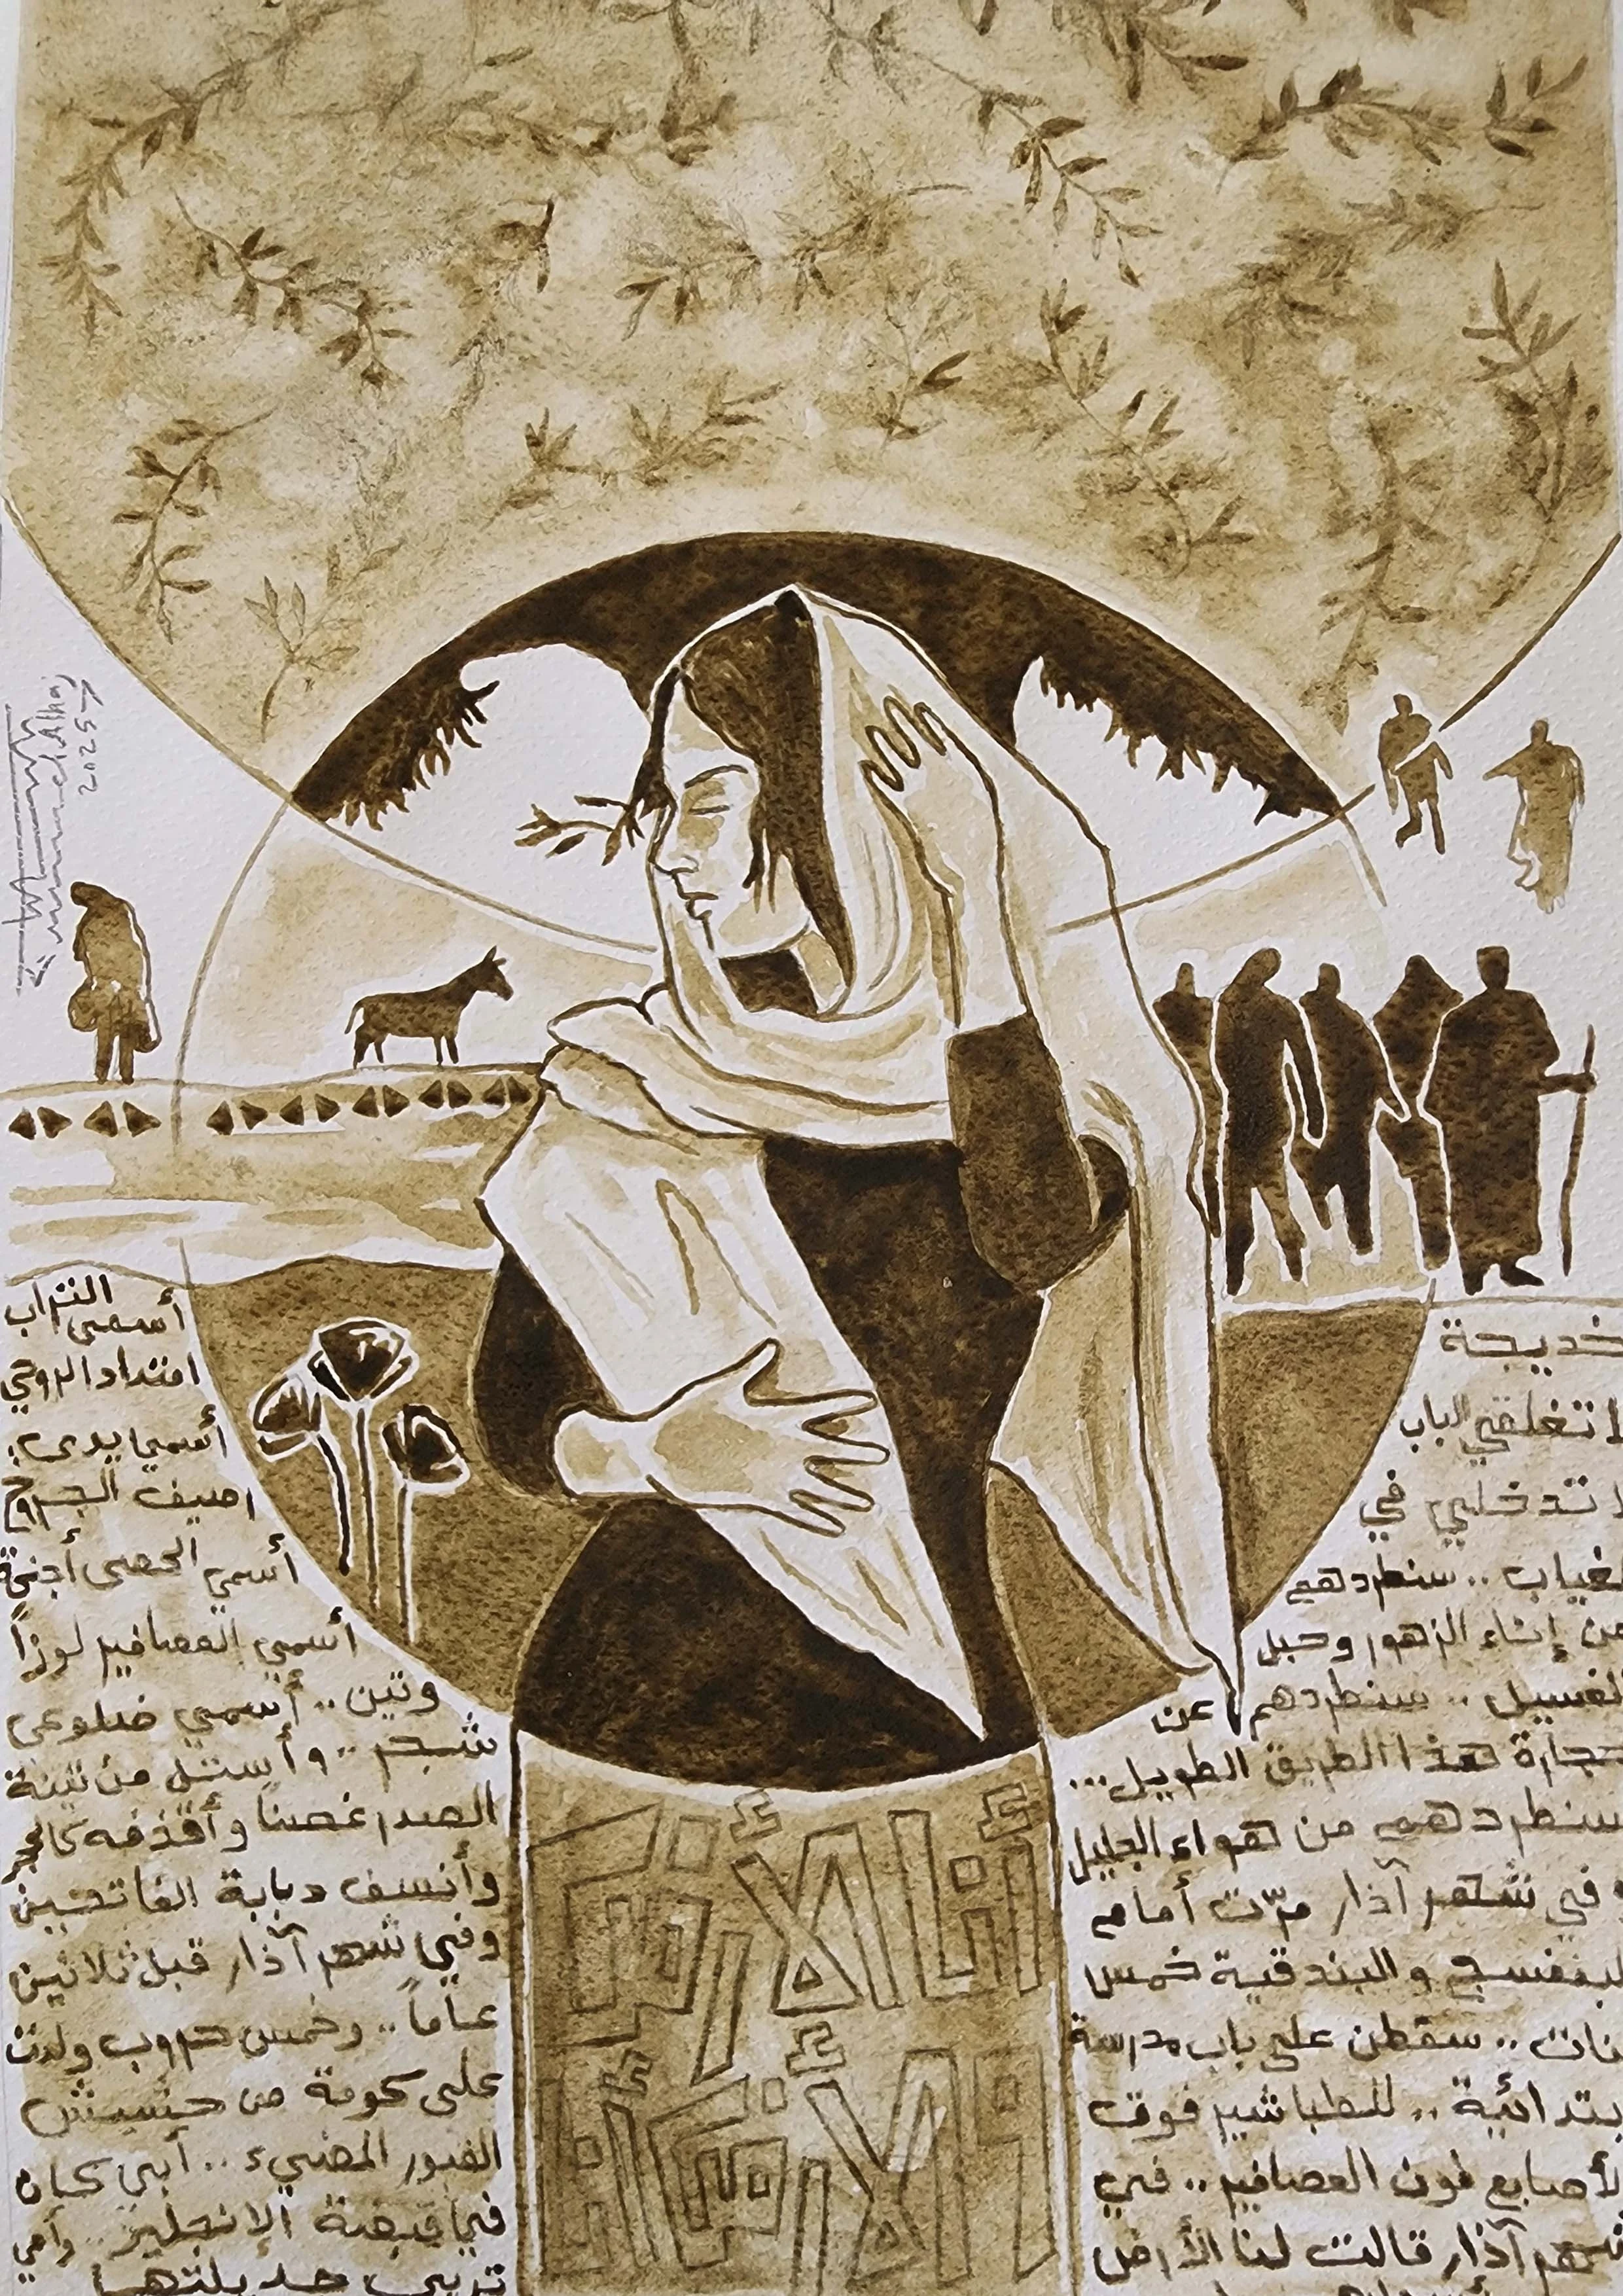 خديجة
لا تغلقي الباب
لا تدخلي في
لغياب .. سنطردهم
عن إناء الزهور وحبل
لغسيل .. سنطردهم عن
حجارة هذا الطريق الطويل...
سنطردهم من هواء الجليل
وفي شهر آذار مرّت أمام
لبنفسج والبندقية خمس
نات .. سقطن على باب مدرسة
بتدائية .. للطباشير فوق
لأصابع لون العصافير .. في
شهر آذار قالت لنا الأرض
أسمي التراب
امتداد الروحي
أسمي يدي
رصيف الجروح
أسمي الحصى أجنحة
أسمي العصافير لوزاً
وتين .. أسمي ضلوعي
شجر .. وأستل من تينة
الصدر غصناً وأقذفه كالحجر
وأنسف دبابة الفاتحين
وفي شهر آذار قبل ثلاثين
عاماً .. وخمس حروب ولدت
على كومة من حشيش
القبور المضيء .. أبي كان
في قبضة الإنجليز .. وأمي
تربي جديلتها
2025